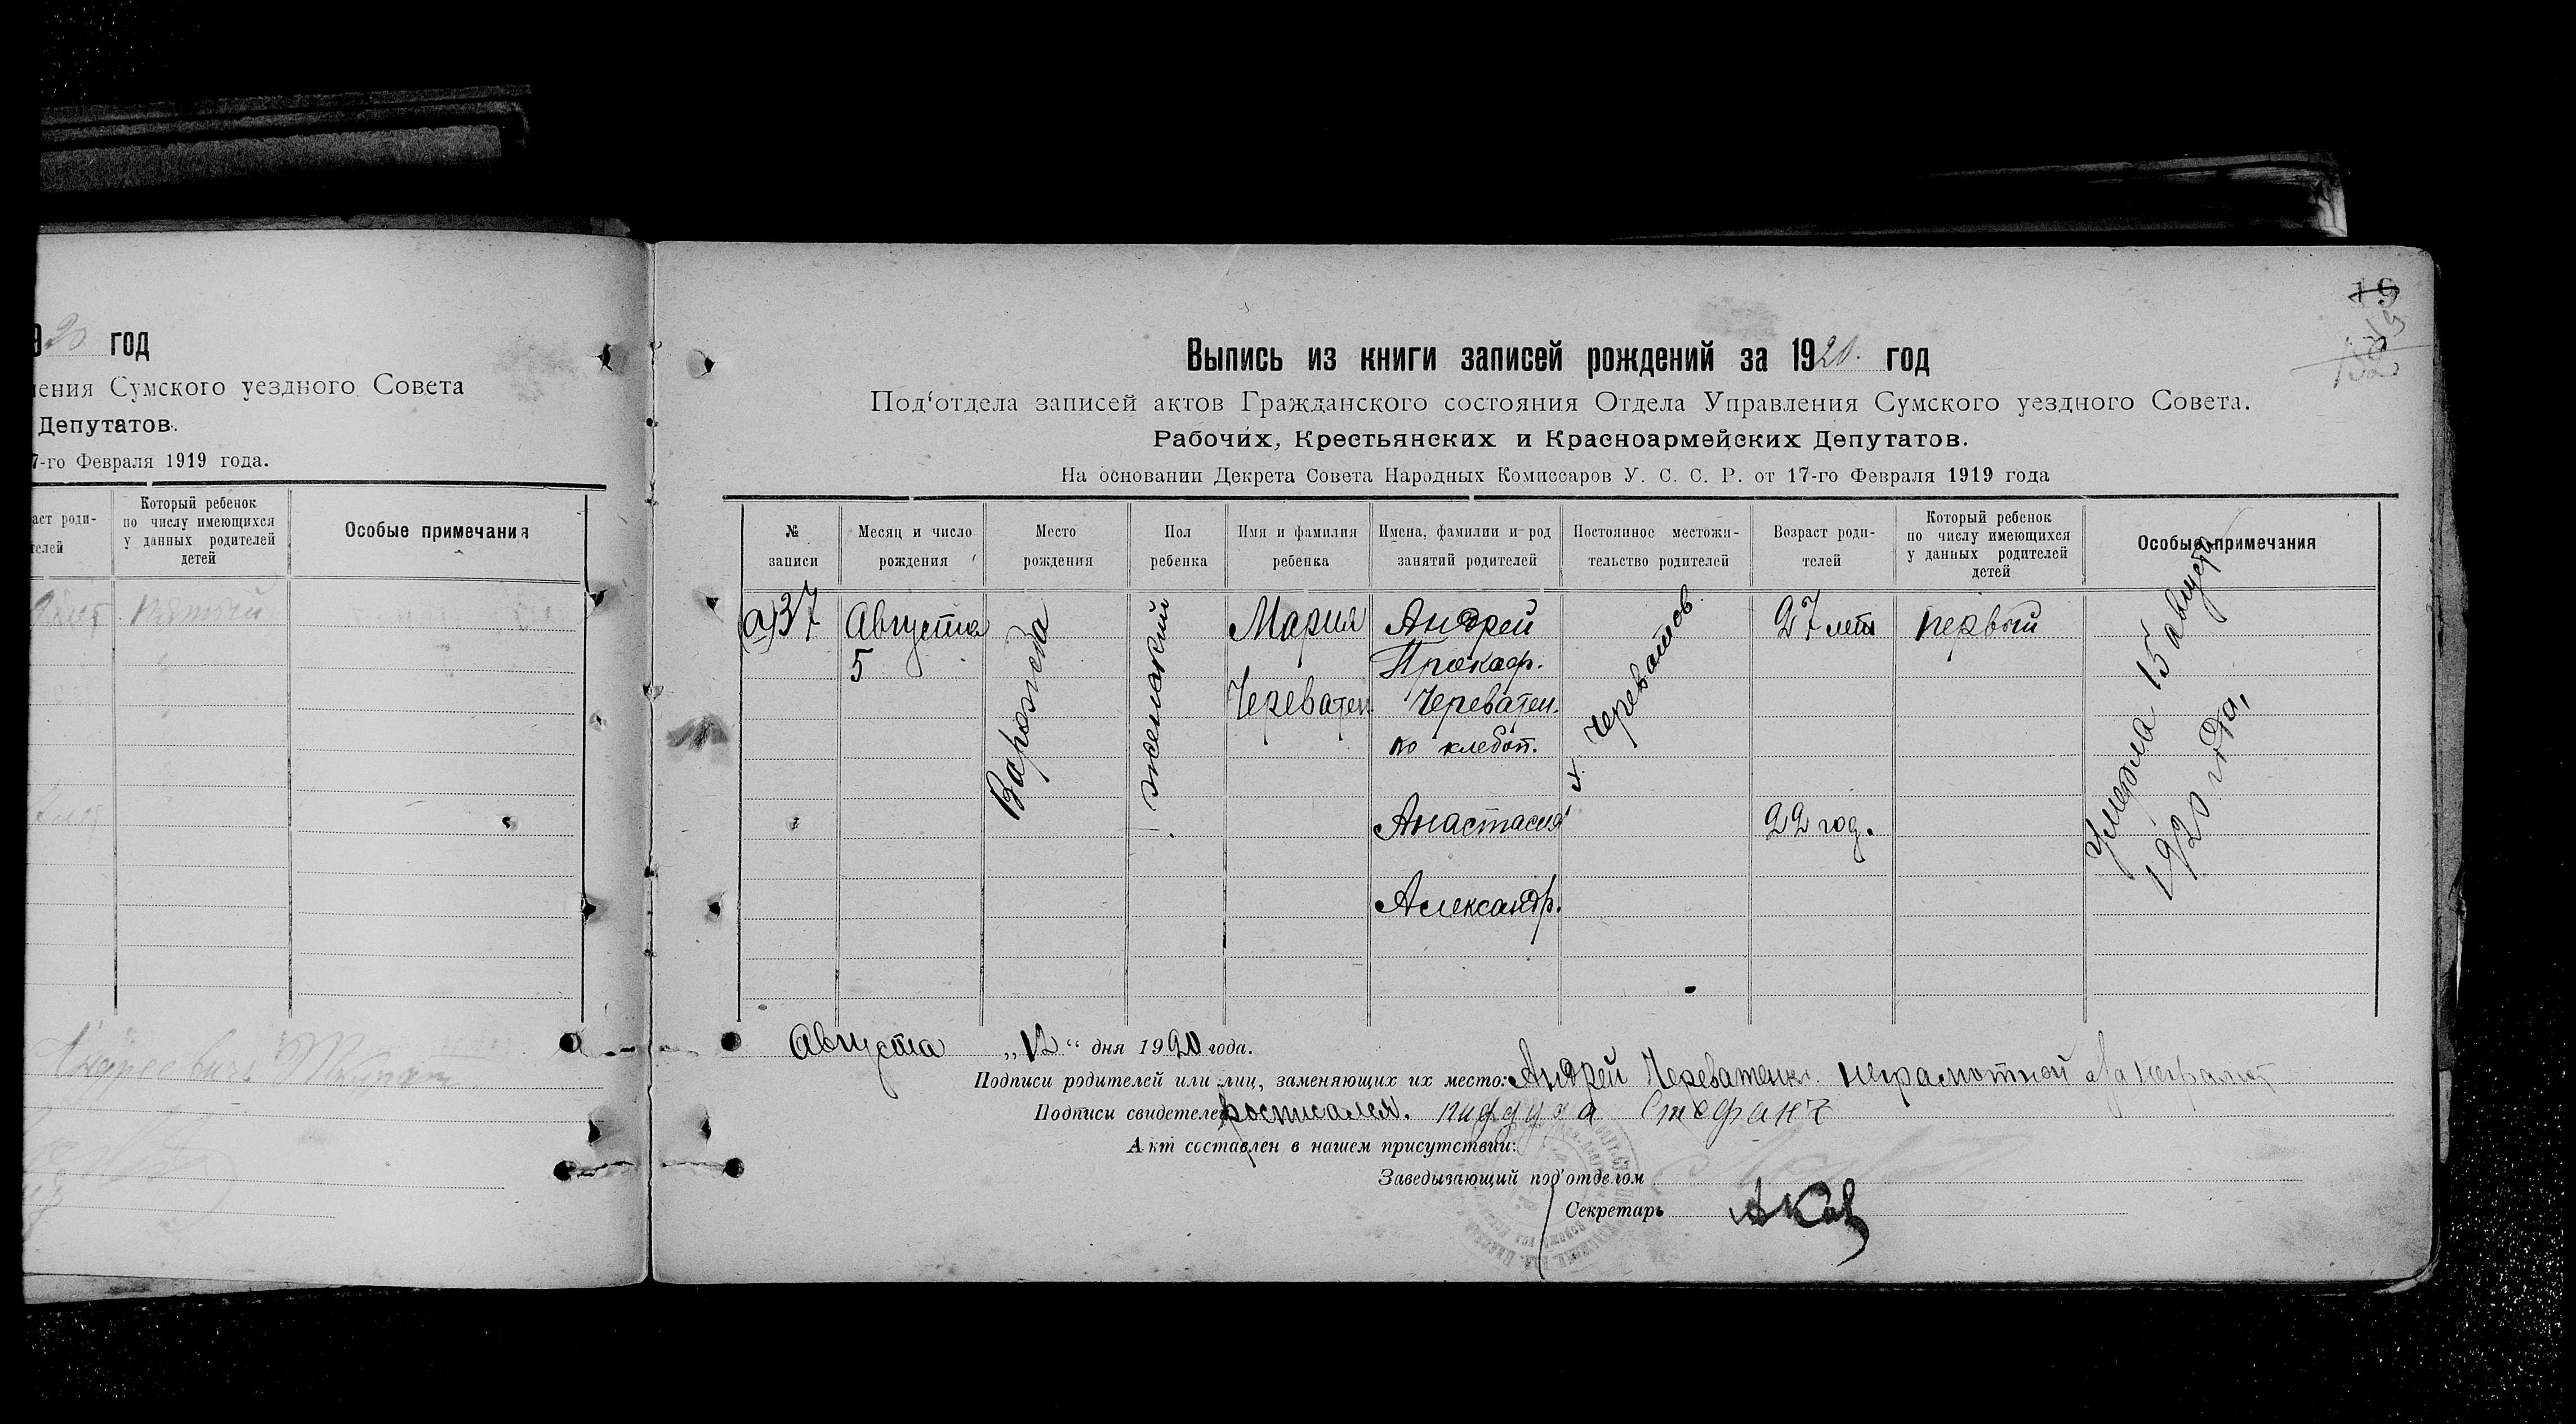 20 год
ления Сумского уездного Совета
Депутатов.
7-го Февраля 1919 года.
аст роди-
телей
Который ребенок
по числу имеющихся
у данных родителей
детей
Особые примечания
пятый
19
Выпись из книги записей рождений за 1920. год
Под'отдела записей актов Гражданского состояния Отдела Управления Сумского уездного Совета.
Рабочих, Крестьянских и Красноармейских Депутатов.
На основании Декрета Совета Народных Комиссаров У. С. С. Р. от 17-го Февраля 1919 года
№
записи
Месяц и число
рождения
Место
рождения
Пол
ребенка
Имя и фамилия
ребенка
Имена, фамилии и род
занятий родителей
Постоянное местожи-
тельство родителей
Возраст роди-
телей
Который ребенок
по числу имеющихся
у данных родителей
детей
Особые примечания
а)37
Августа
5
Ворожба
женский
Мария
Череватен
Андрей
Прокоф.
Череватен.
ко хлебоп.
Анастасия
Александр.
х. Череватов
27 лет
22 год.
первый
Умерла 15 августа
1920 года,
Августа „12“ дня 1920 года.
Подписи родителей или лиц, заменяющих их место: Андрей Череватенк. неграмотной
Подписи свидетелей росписался. Стефанъ
Акт составлен в нашем присутствии:
Заведывающий под'отделом
Секретарь